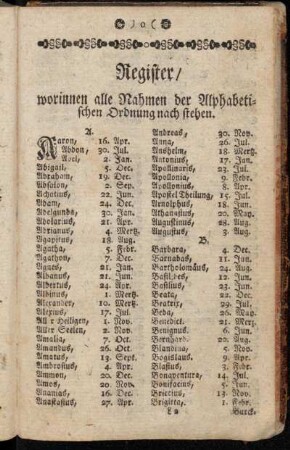 ) o (
Register/
worinnen alle Nahmen der Alphabeti-
schen Ordnung nach stehen.
A.
Aaron, 16. Apr.
Abdon, 30. Jul.
Abel, 2. Jan.
Abigail, 5. Dec.
Abraham, 19. Dec.
Absalon, 2. Sep.
Achatius, 22. Jun.
Adam, 24. Dec.
Adelgunda, 30. Jan.
Adolarius, 21. Apr.
Adrianus, 4. Mertz.
Agapitus, 18. Aug.
Agatha, 5. Febr.
Agathon, 7. Dec.
Agnes, 21. Jan.
Albanus, 21. Jun.
Albertus, 24. Apr.
Albinus, 1. Mertz.
Alexander, 10. Mertz.
Alexius, 17. Jul.
Aller Heiligen, 1. Nov.
Aller Seelen, 2. Nov.
Amalia, 7. Oct.
Amandus, 26. Oct.
Amatus, 13. Sept.
Ambrosius, 4. Apr.
Ammon, 20. Dec.
Amos, 20. Nov.
Ananias, 16. Dec.
Anastasius, 27. Apr.
Andreas, 30. Nov.
Anna, 26. Jul.
Anshelm, 18. Mertz.
Antonius, 17. Jan.
Apollinaris, 23. Jul.
Apollonia, 9. Febr.
Apollonius, 8. Apr.
Apostel Theilung, 15. Jul.
Arnolphus, 18. Jun.
Athanasius, 20. May.
Augustinus, 28. Aug.
Augustus, 3. Aug.
B.
Barbara, 4. Dec.
Barnabas, 11. Jun.
Bartholomäus, 24. Aug.
Basilides, 12. Jun.
Basilius, 23. Jun.
Beata, 22. Dec.
Beatrix, 29. Jul.
Beda, 26. May.
Benedict, 21. Mertz.
Benignus, 6. Jun.
Bernhard, 20. Aug.
Blandina, 5. Nov.
Bogislaus, 9. Apr.
Blasius, 3. Febr.
Bonaventura, 14. Jul.
Bonifacius, 5. Jun.
Brictius, 13. Nov.
Brigitta, 1. Febr.
Burck-